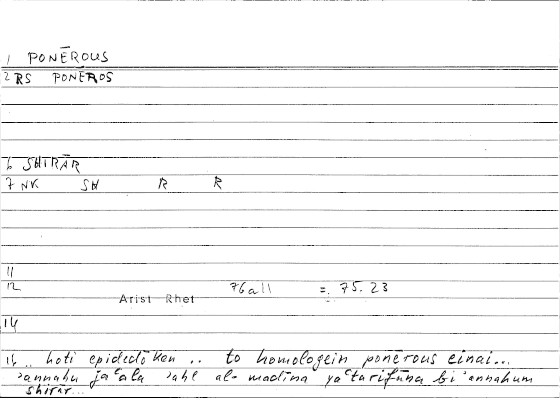 1 PONĒROUS
2 RS PONĒROS
6 SHIRĀR
7 NK SH R R
11
12 Arist Rhet 76a11 = 75.23
14
15 .. hoti epidedōken .. to homologein ponērous einai...
ʾannahu jaʿala ʾahl al-madīna yaʿtarifūna bi ʾannahum
shirār...